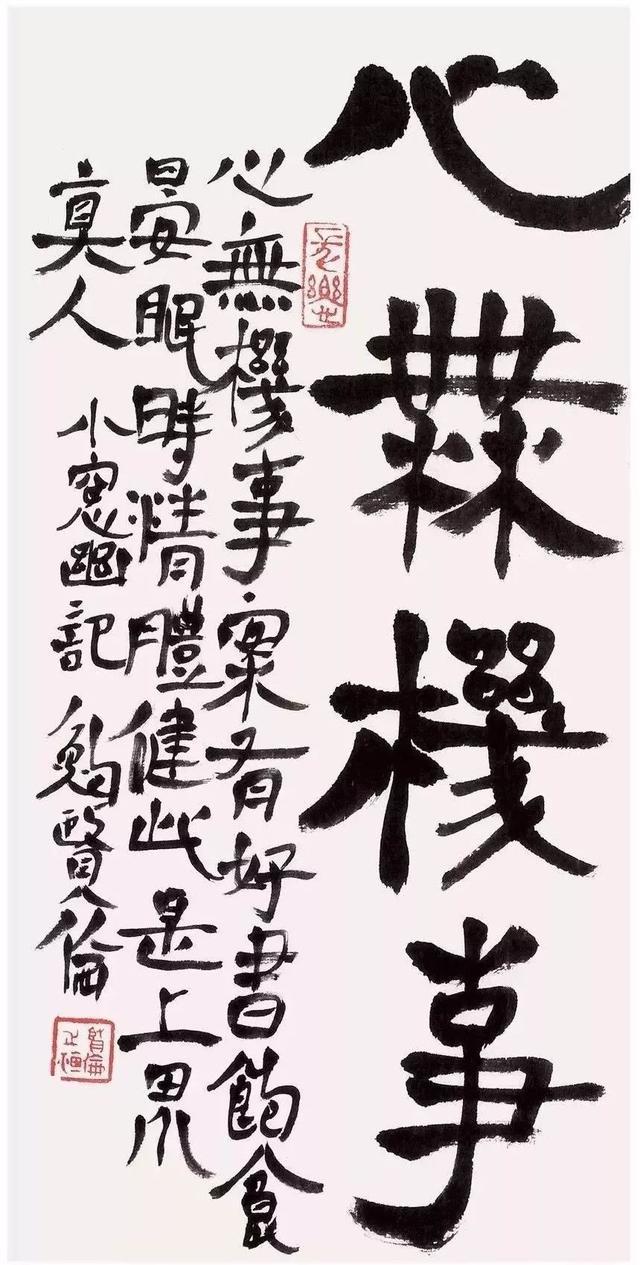 心無機事
心無機事案有好書飽食
晏眠時清體健此是上界
真人 小窓幽記 鮑賢倫